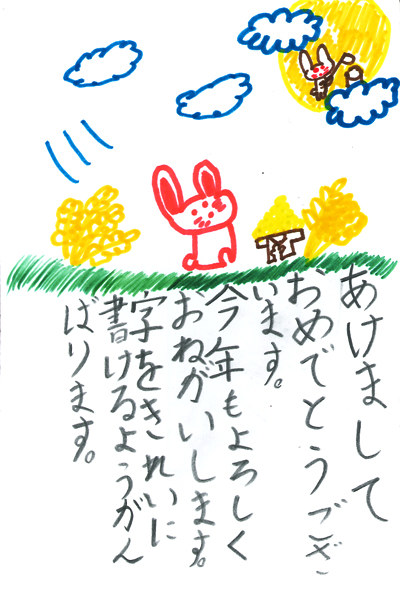 あけまして
おめでとうござ
います。
今年もよろしく
おねがいします。
字をきれいに
書けるようがん
ばります。